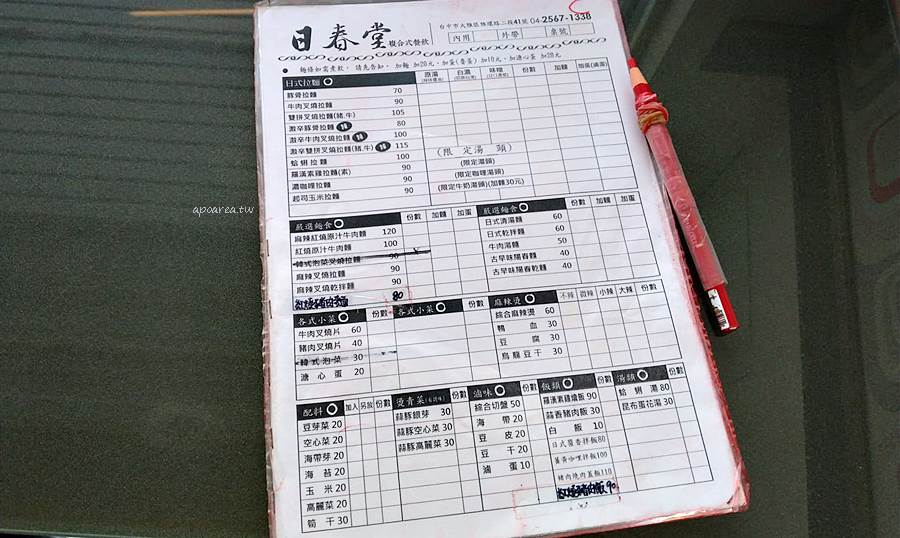 日春堂 複合式餐飲
台中市大雅區雅環路二段41號 04-2567-1338
內用 外帶 桌號
● 麵條如需煮軟，請先告知。加麵 加20元，加蛋(魯蛋) 加10元，加溏心蛋 加20元
日式拉麵 原湯 白濃 味噌 份數 加麵 加蛋
豚骨拉麵 70
牛肉叉燒拉麵 90
雙拼叉燒拉麵(豬.牛) 105
激辛豚骨拉麵 80
激辛牛肉叉燒拉麵 100
激辛雙拼叉燒拉麵(豬.牛) 115
蛤蜊拉麵 100 (限定湯頭)
羅漢素雞拉麵(素) 90 (限定湯頭)
濃咖哩拉麵 90 (限定咖哩湯頭)
起司玉米拉麵 90 (限定牛奶湯頭)(加麵30元)
嚴選麵食 份數 加麵 加蛋
麻辣紅燒原汁牛肉麵 120
紅燒原汁牛肉麵 100
韓式泡菜叉燒拉麵 90
麻辣叉燒拉麵 90
麻辣叉燒乾拌麵 90
80
嚴選麵食 份數 加麵 加蛋
日式清湯麵 60
日式乾拌麵 60
牛肉湯麵 50
古早味陽春麵 40
古早味陽春乾麵 40
各式小菜 份數
牛肉叉燒片 60
豬肉叉燒片 40
韓式泡菜 30
溏心蛋 20
各式小菜 份數
麻辣燙 不辣 微辣 小辣 大辣 份數
綜合麻辣燙 60
鴨血 30
豆腐 30
烏龍豆干 30
配料 加入 另放 份數
豆芽菜 20
空心菜 20
海帶芽 20
海苔 20
玉米 20
高麗菜 20
筍干 30
燙青菜 份數
蒜豚銀芽 30
蒜豚空心菜 30
蒜豚高麗菜 30
滷味 份數
綜合切盤 50
海帶 20
豆皮 20
豆干 20
滷蛋 10
飯類 份數
羅漢素雞燴飯 90
蒜香豬肉飯 30
白飯 10
日式醬香拌飯 80
薑黃咖哩拌飯 100
豬肉燒肉蓋飯 110
90
湯類 份數
蛤蜊湯 80
昆布蛋花湯 30
apoarea.tw